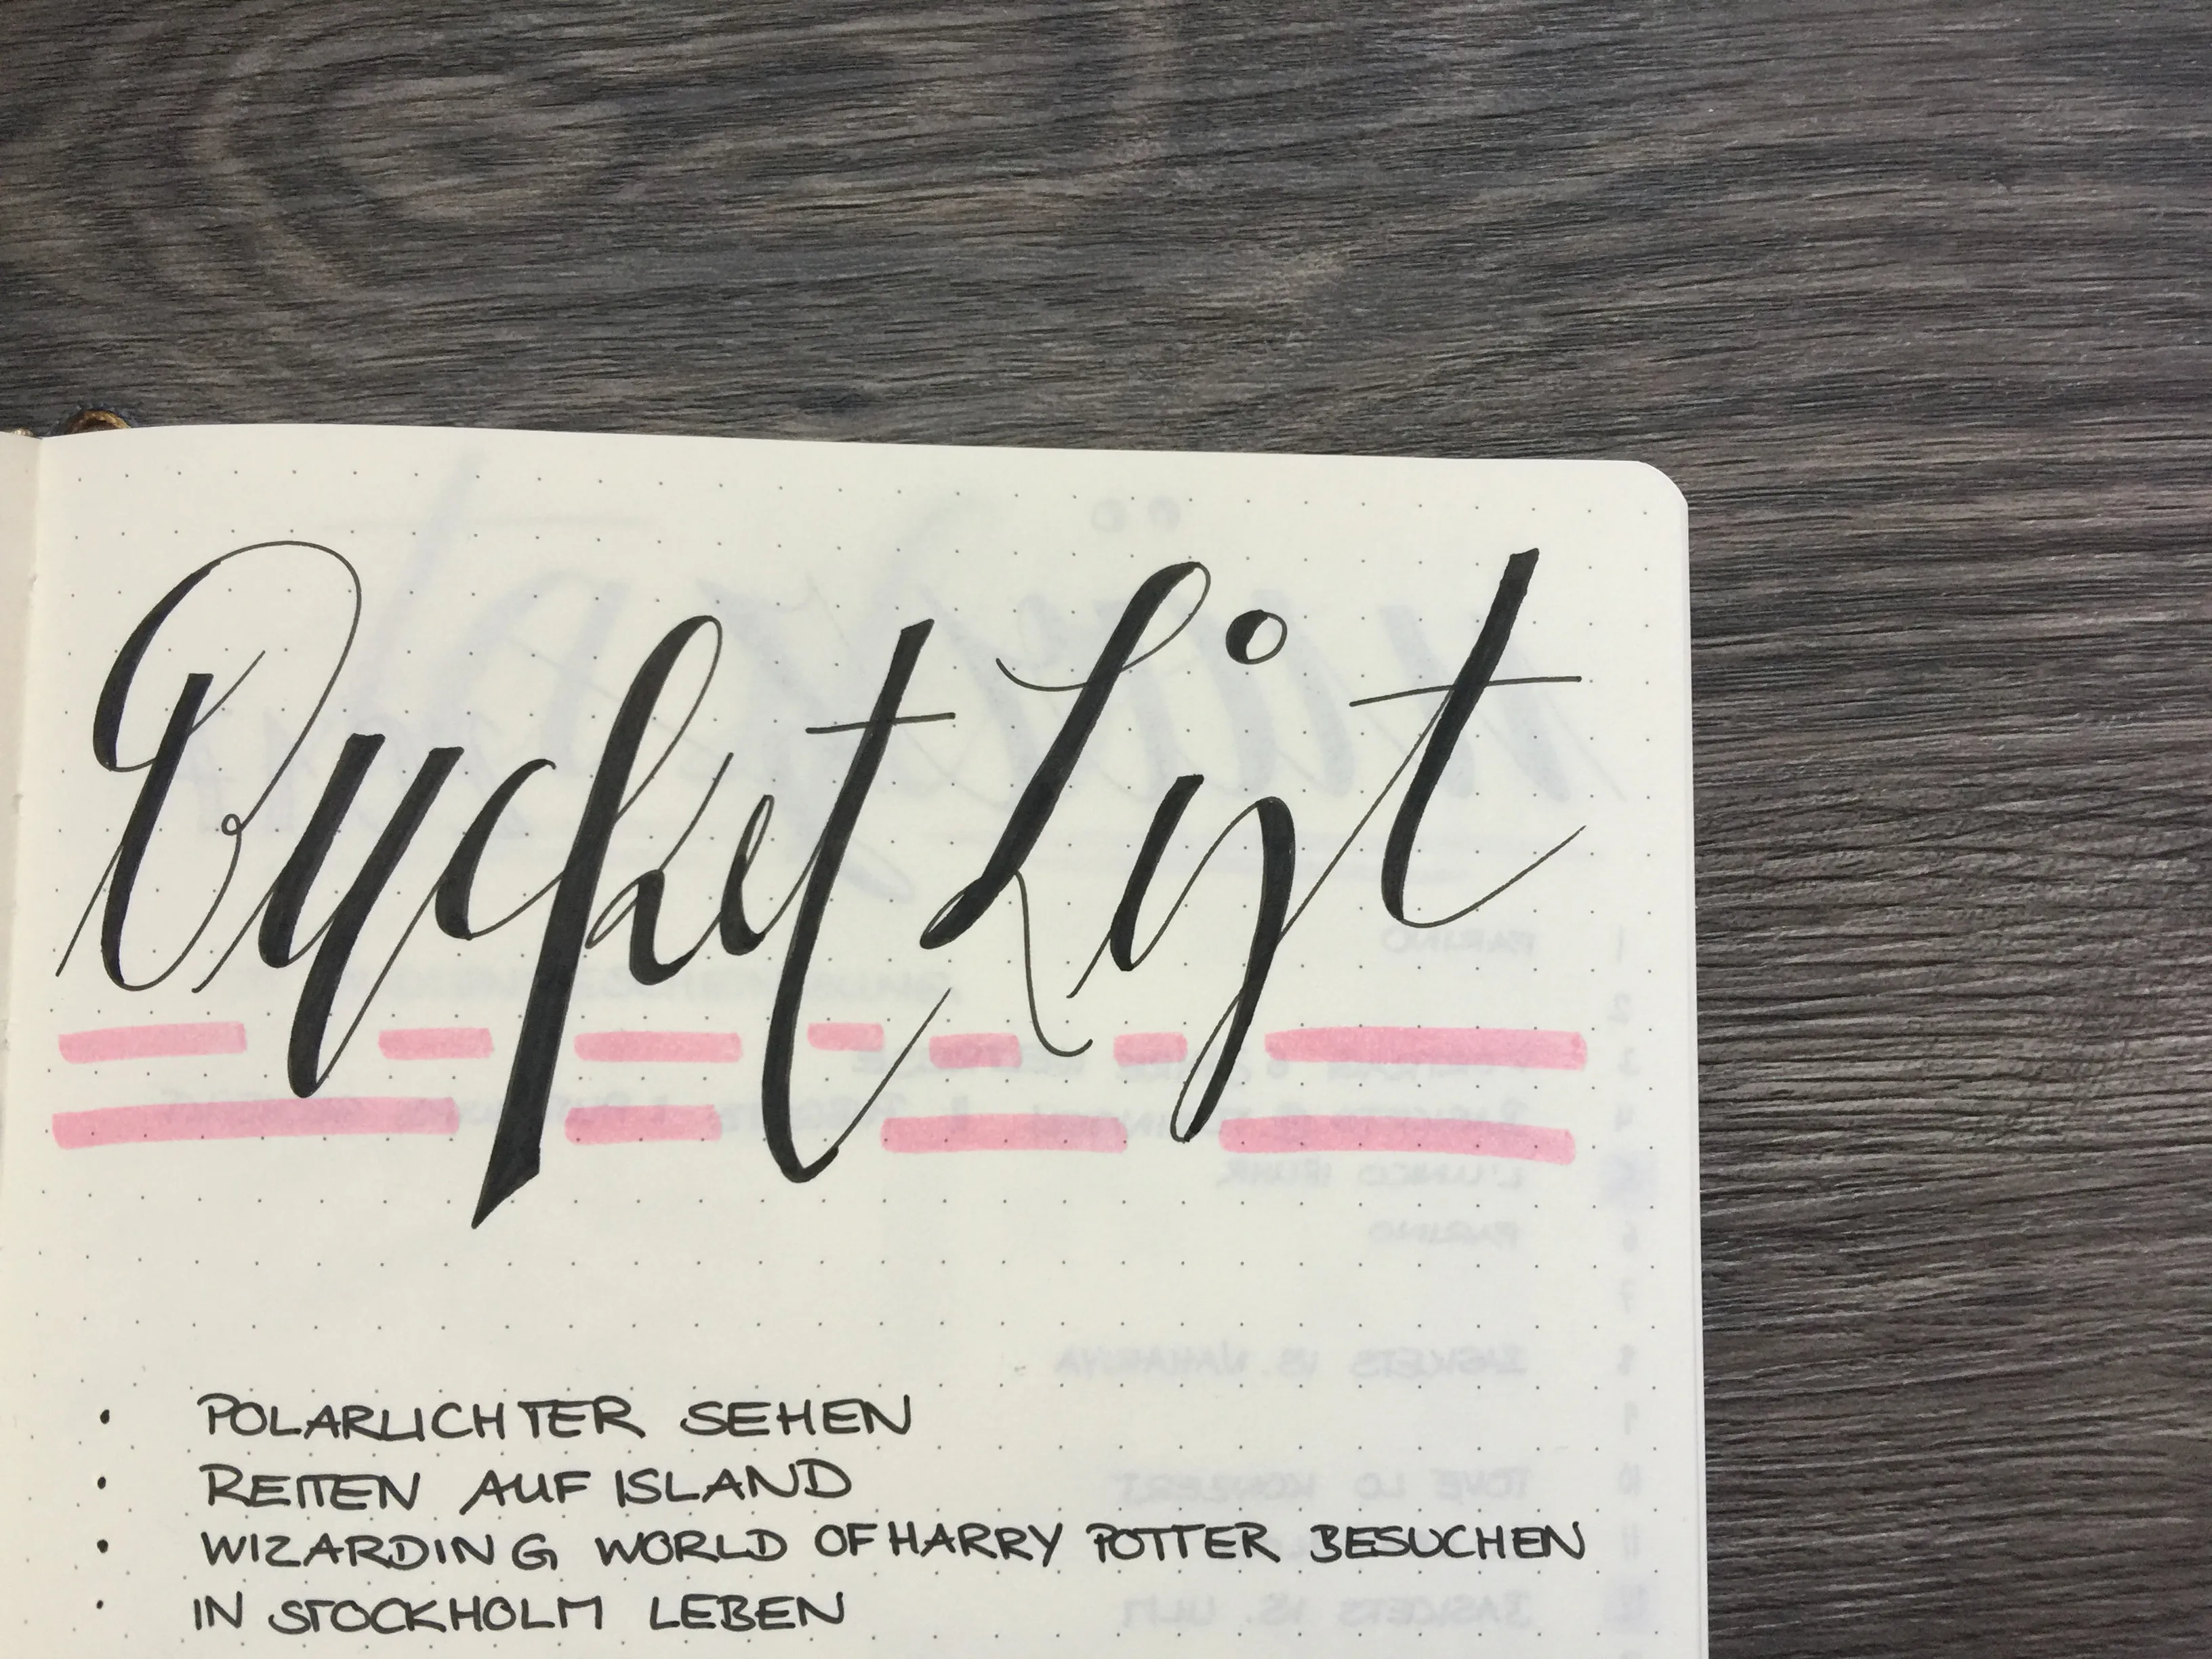 Bucket List
• POLARLICHTER SEHEN
• REITEN AUF ISLAND
• WIZARDING WORLD OF HARRY POTTER BESUCHEN
• IN STOCKHOLM LEBEN